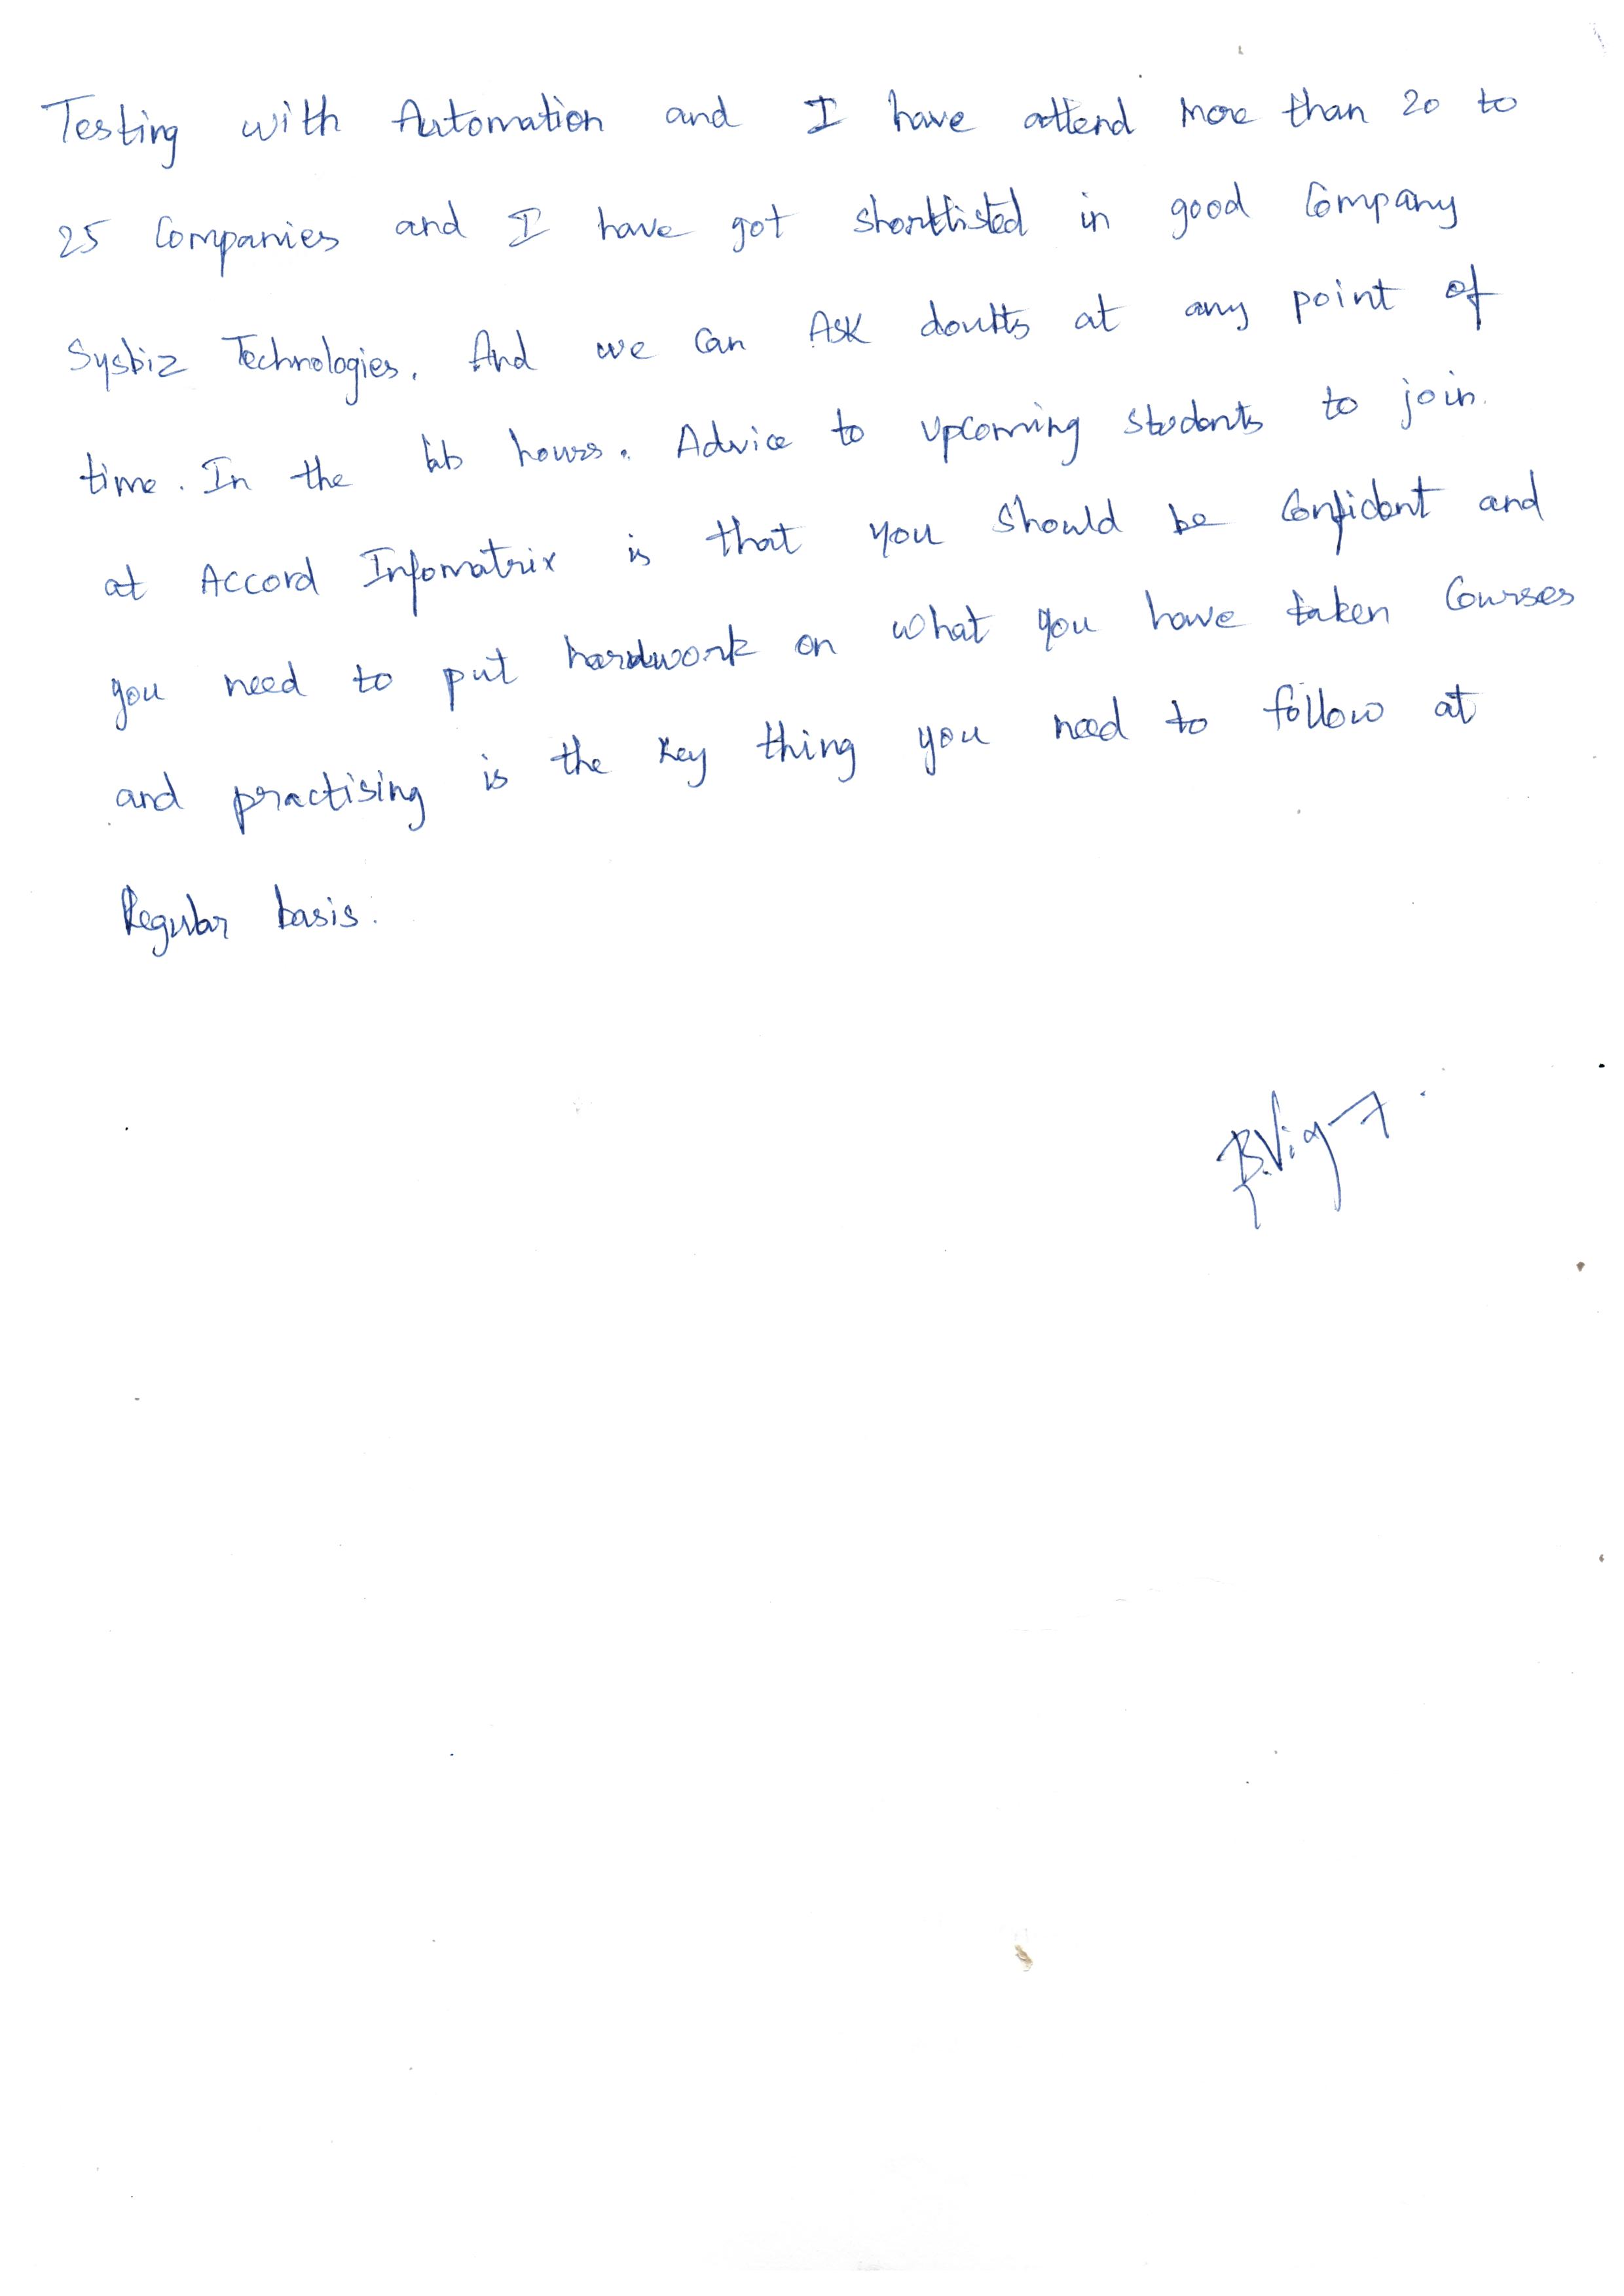 Testing with Automation and I have attend more than 20 to
25 Companies and I have got shortlisted in good Company
Sysbiz Technologies. And we can Ask doubts at any point of
time. In the lab hours. Advice to upcoming students to join.
at Accord Infomatrix is that you should be Confident and
you need to put hardwork on what you have taken Courses
and practising is the key thing you need to follow at
Regular basis.